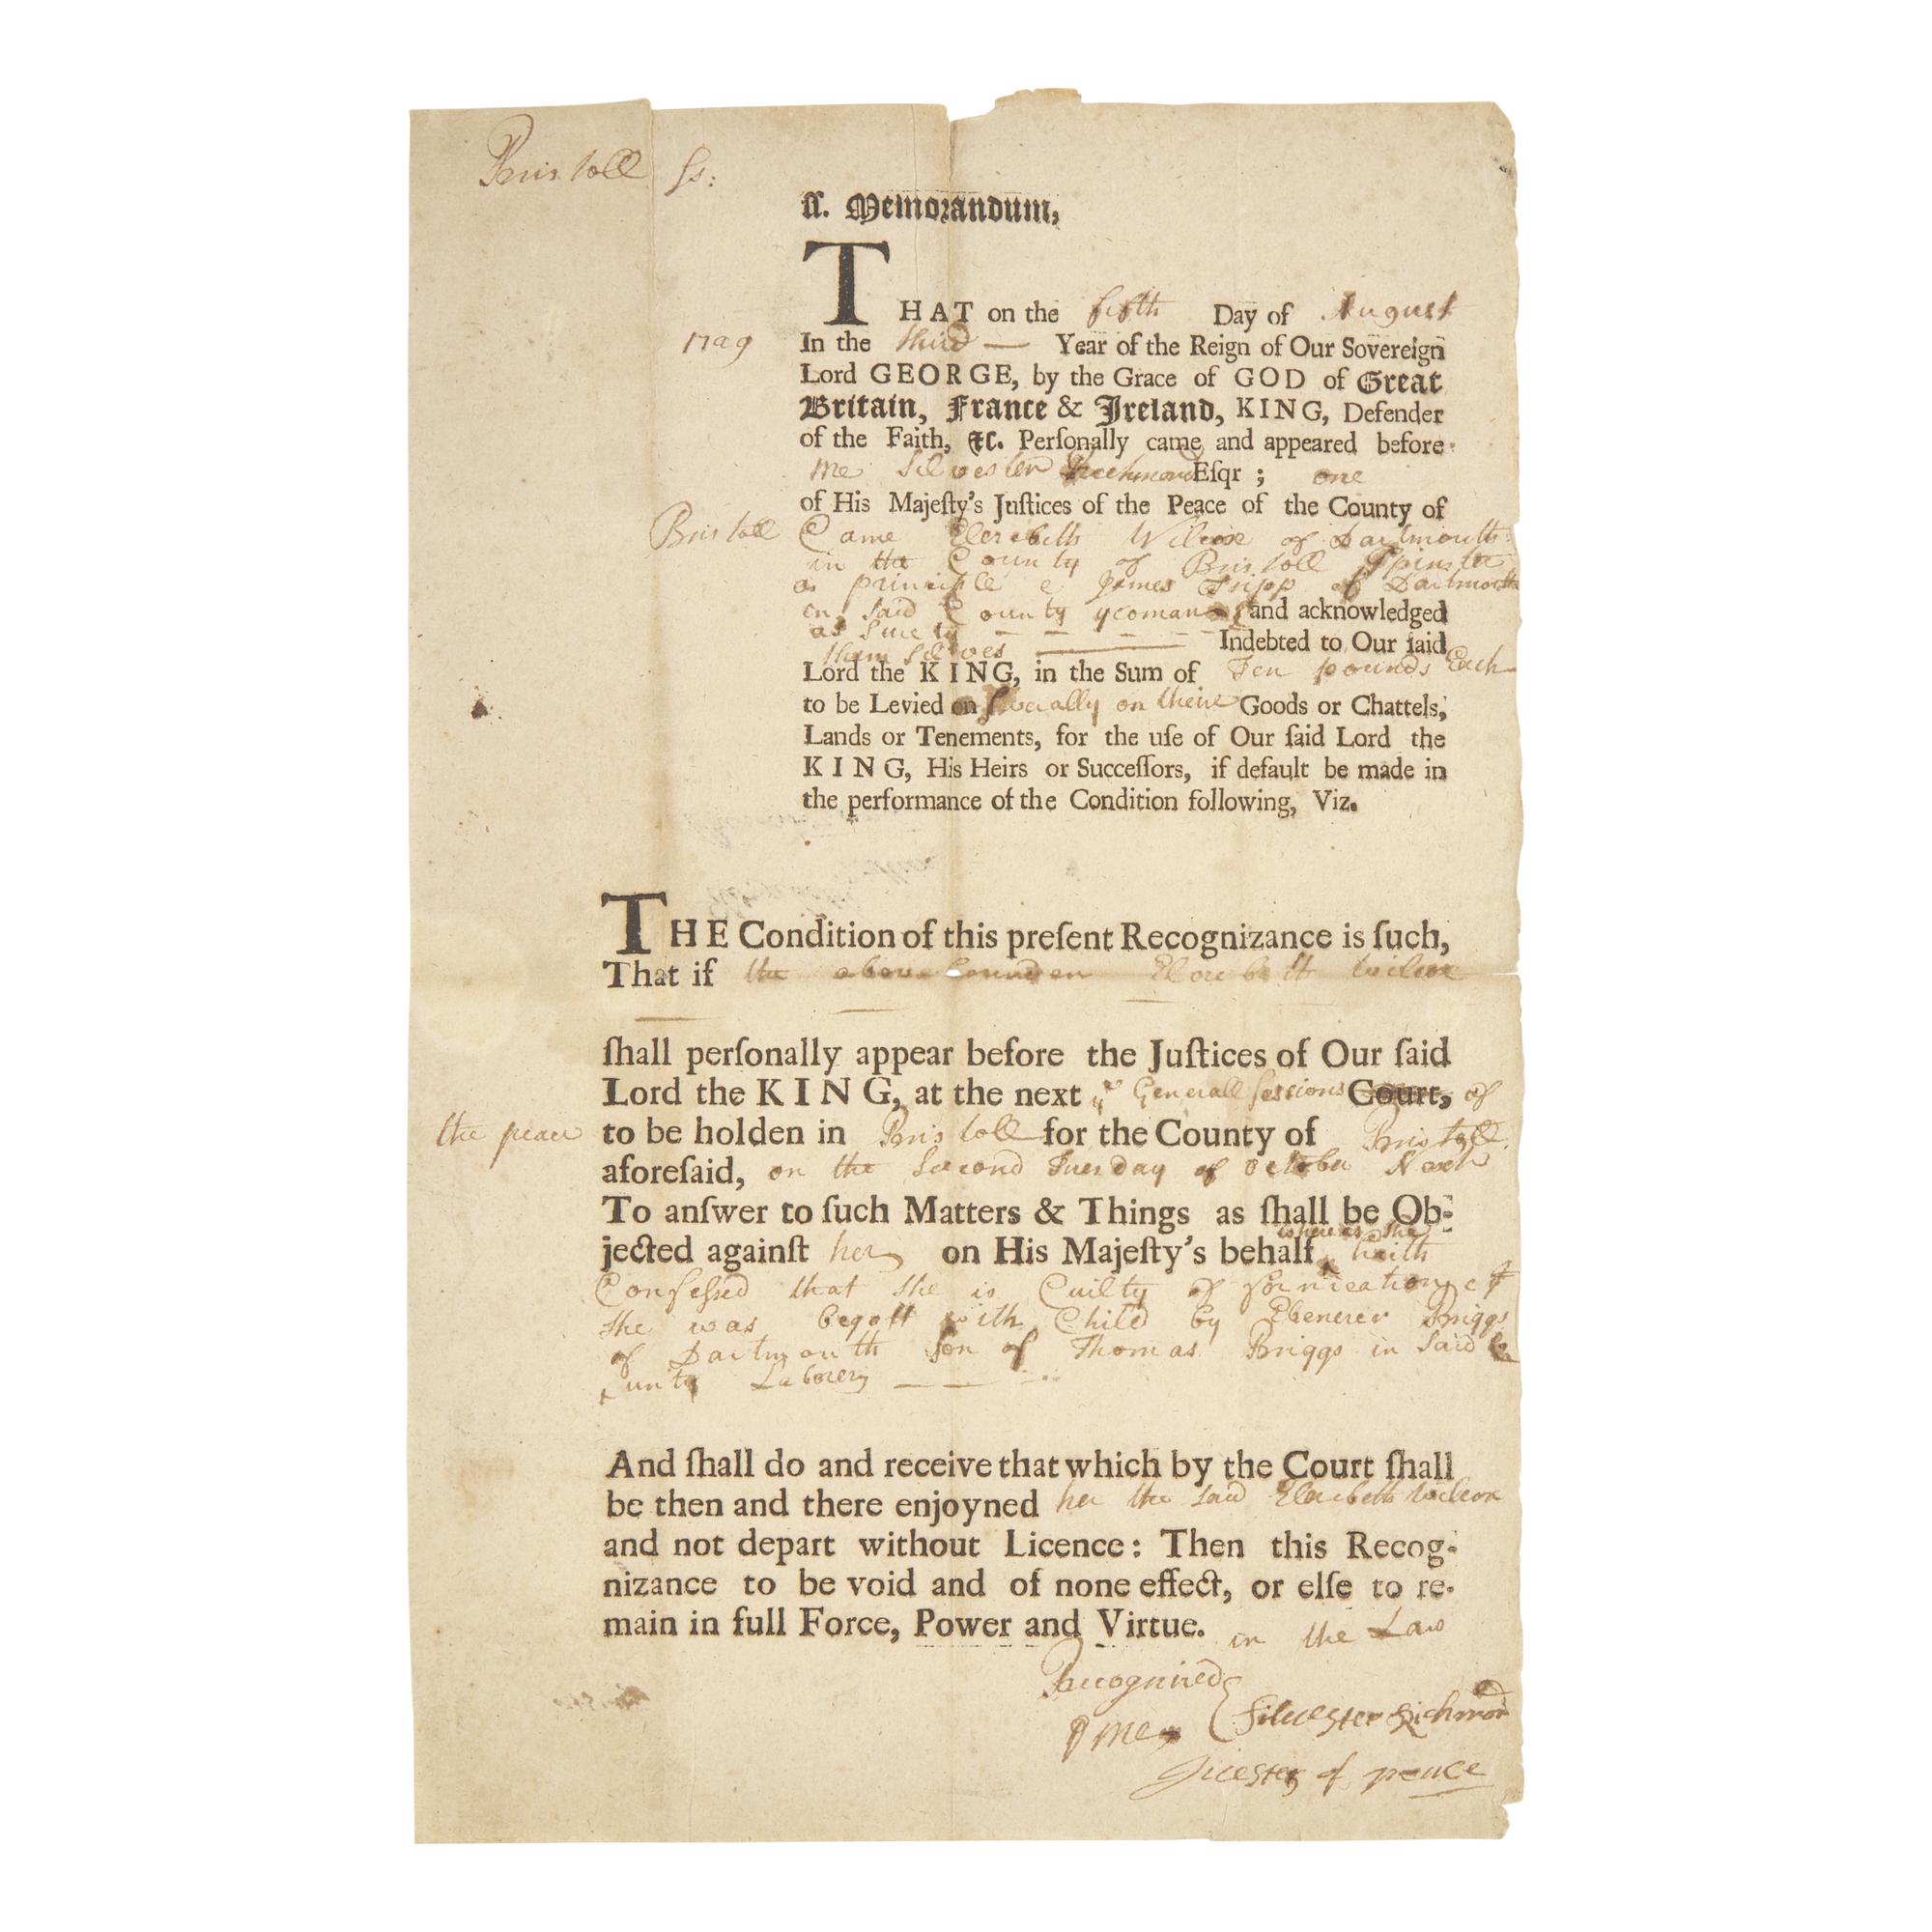 Bristoll ſs:
ſſ. Memorandum,
THAT on the fifth Day of August
1729 In the third — Year of the Reign of Our Sovereign
Lord GEORGE, by the Grace of GOD of Great
Britain, France & Ireland, KING, Defender
of the Faith, &c. Perſonally came and appeared before
me Silvester Richmond Eſqr ; one
of His Majeſty's Juſtices of the Peace of the County of
Bristoll Came Elezebeth Wilcox of Dartmouth
in the County of Bristoll Spinster
as principle & James Tripp of Dartmouth
in said County yeoman and acknowledged
as surety — — — — Indebted to Our ſaid
them selves
Lord the KING, in the Sum of Ten pounds Each
to be Levied on severally on theire Goods or Chattels,
Lands or Tenements, for the uſe of Our ſaid Lord the
KING, His Heirs or Succeſſors, if default be made in
the performance of the Condition following, Viz.
THE Condition of this preſent Recognizance is ſuch,
That if the above bounden Elezebeth wilcox
ſhall perſonally appear before the Juſtices of Our ſaid
Lord the KING, at the next ye Generall Sessions Court, of
the peace to be holden in Bristoll for the County of Bristoll
aforeſaid, on the Second Tuesday of october Next
To anſwer to ſuch Matters & Things as ſhall be Ob-
jected againſt her on His Majeſty's behalf whereas she haith
Confessed that she is Guilty of fornication &
she was begott with Child by Ebenezer Briggs
of Dartmouth son of Thomas Briggs in said Co
unty Laborer — —
And ſhall do and receive that which by the Court ſhall
be then and there enjoyned her the said Elezebeth wilcox
and not depart without Licence: Then this Recog-
nizance to be void and of none effect, or elſe to re-
main in full Force, Power and Virtue. in the Law
Recognized
℘ me Silvester Richmond
Jucstes of peace